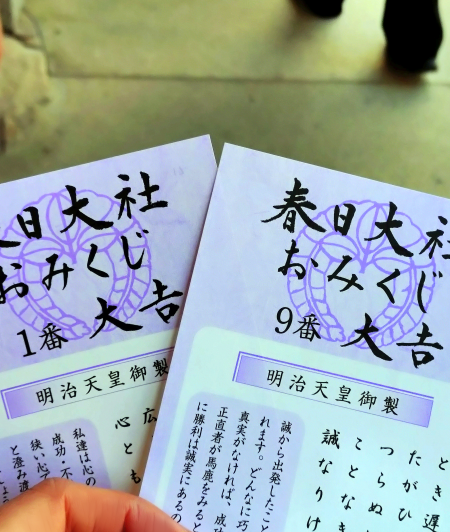 日大社
おみくじ
1番 大吉
明治天皇御製
広
心とも
私達は心の
成功・不
狭い心で
と澄み渡
春日大社
おみくじ
9番 大吉
明治天皇御製
とき遅
たがひ
つらぬ
ことなき
誠なりけ
誠から出発したこと
れます。どんなに巧
真実がなければ、成
正直者が馬鹿をみると
に勝利は誠実にあるの